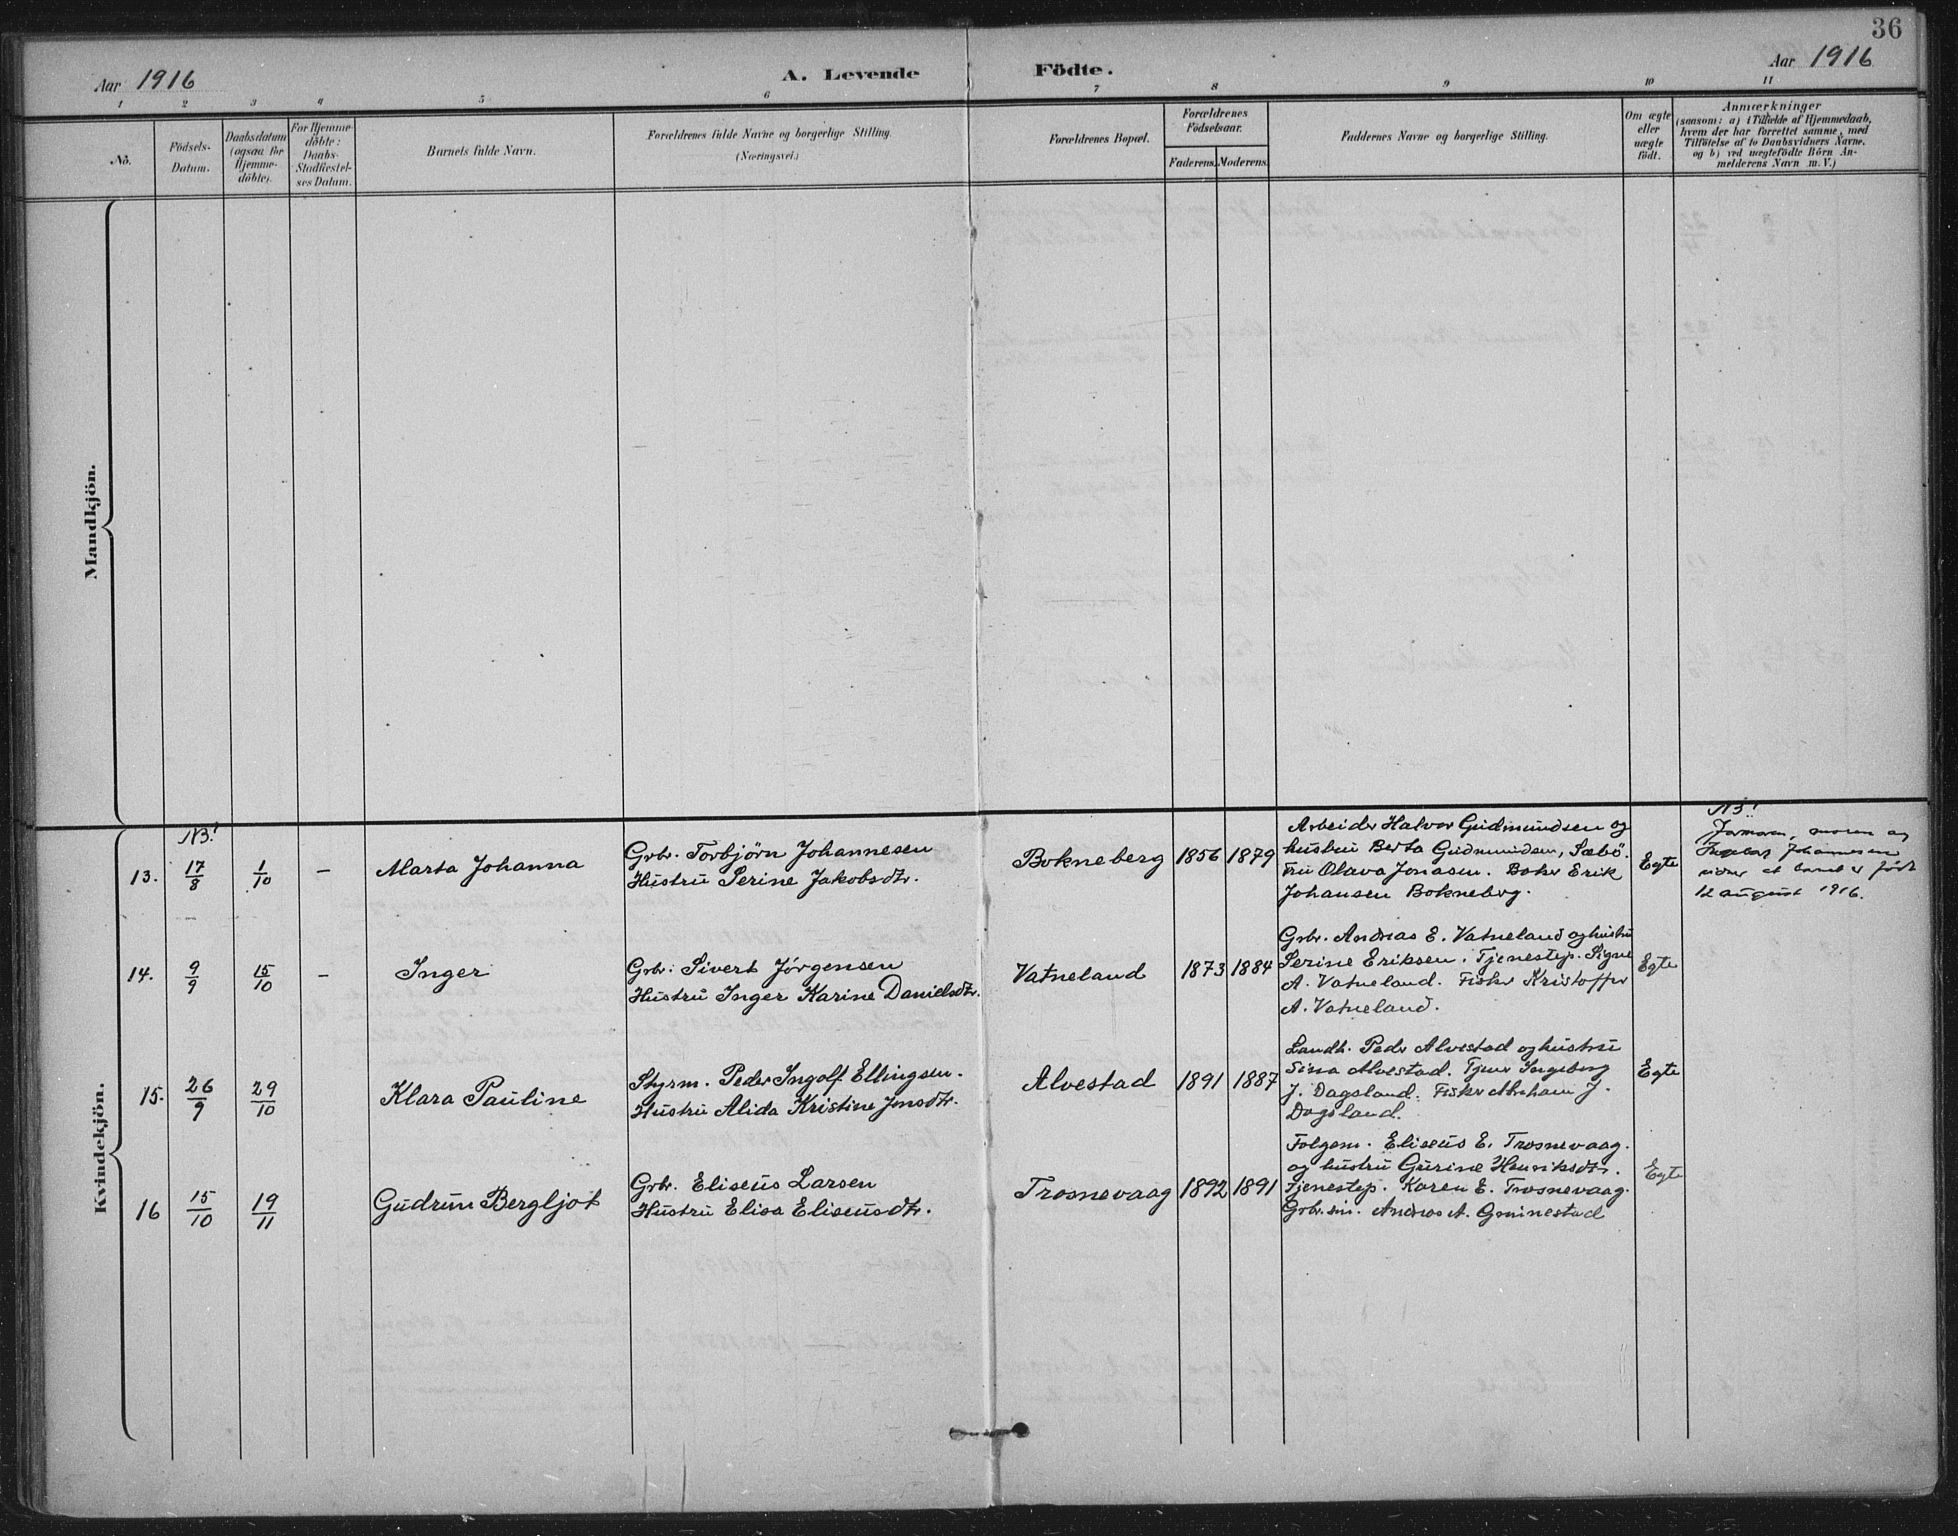 36
Aar 1916
A. Levende Födte.
Aar 1916
1 2 3 4 5 6 7 8 9 10 11
No.
Födsels-
Datum.
Daabsdatum
(ogsaa for
Hjemme-
döbte).
For Hjemme-
döbte:
Daabs-
Stadfæstel-
ses Datum.
Barnets fulde Navn.
Forældrenes fulde Navne og borgerlige Stilling.
(Næringsvei.)
Forældrenes Bopæl.
Forældrenes
Födselsaar.
Faderens. Moderens.
Faddernes Navne og borgerlige Stilling.
Om ægte
eller
uægte
födt.
Anmærkninger
(saasom: a) i Tilfælde af Hjemmedaab,
hvem der har forrettet samme, med
Tilföielse af to Daabsvidners Navne,
og b) ved uægtefödte Börn An-
melderens Navn m. V.)
Mandkjön.
Kvindekjön.
NB!
13. 17/8 1/10 – Marta Johanna
Grbr. Torbjørn Johannesen
Hustru Serine Jakobsdtr.
Bokneberg 1856 1879
Arbeider Halvor Gudmundsen og
hustru Berta Gudmundsen, Sæbö.
Fru Olava Jonasen. Boker Erik
Johansen Bokneberg.
Egte
NB!
Jormoren, moren og
Johannesen
at barnet er født
12 august 1916.
14. 9/9 15/10 – Inger
Grbr. Sivert Jörgensen
Hustru Inger Karine Danielsdtr.
Vatneland 1873 1884
Grbr. Andreas E. Vatneland og hustru
Serine Eriksen. Tjenestep. Signe
A. Vatneland. Fisker Kristoffer
A. Vatneland.
Egte
15. 26/9 29/10 Klara Pauline
Styrm. Peder Ingolf Ellingsen.
Hustru Alida Kristine Jonsdtr.
Alvestad 1891 1887
Landh. Peder Alvestad og hustru
Sina Alvestad. Tjener Ingeborg
J. Dagsland. Fisker Abraham J.
Dagsland.
Egte
16 15/10 19/11 Gudrun Bergljot
Grbr. Eliseus Larsen
Hustru Elisa Eliseusdtr.
Trosnevaag 1892 1891
Folgem. Eliseus E. Trosnevaag.
og hustru Gurine Henriksdtr.
Tjenestep. Karen E. Trosnevaag.
Grbr. sön. Andreas A. Grönnestad
Egte